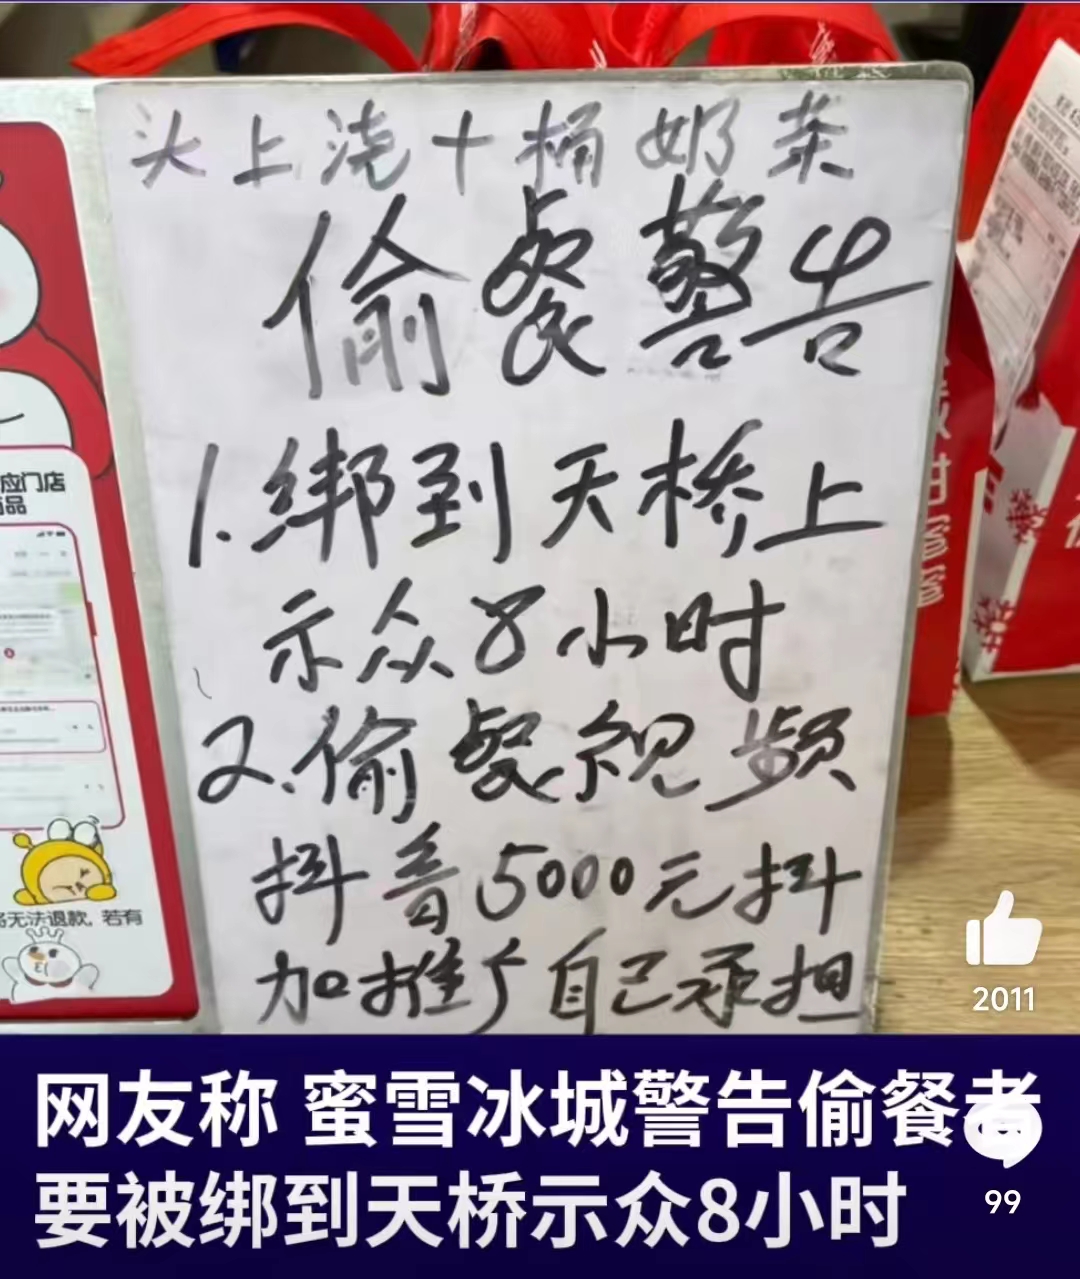 头上浇十桶奶茶
偷餐警告
1.绑到天桥上
示众8小时
2.偷餐视频
抖音5000元抖
加推广自己承担
应门店
商品
无法退款,若有
2011
网友称 蜜雪冰城警告偷餐者
要被绑到天桥示众8小时
99